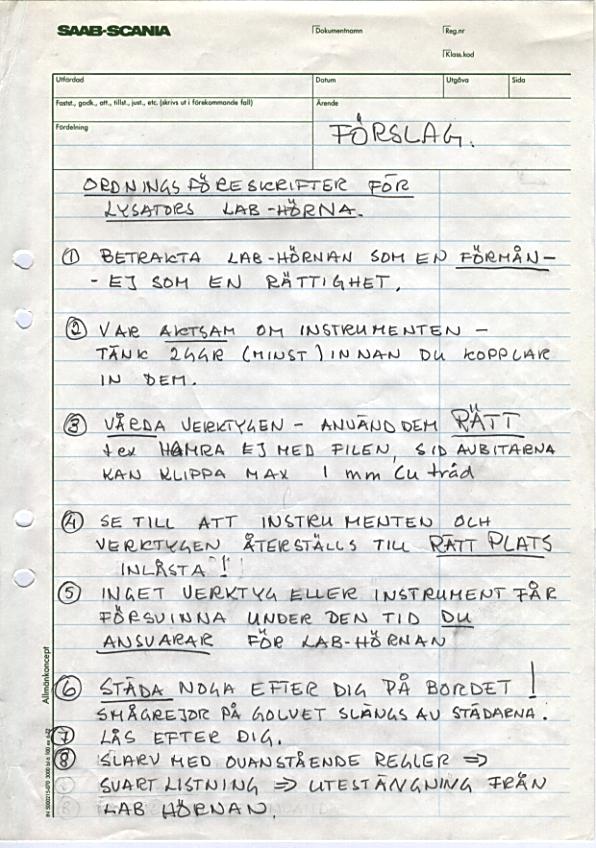 SAAB-SCANIA
Dokumentnamn
Reg.nr
Klass.kod
Utfärdad
Datum
Utgåva
Sida
Fastst., godk., att., tillst., just., etc. (skrivs ut i förekommande fall)
Ärende
Fördelning
FÖRSLAG.
ORDNINGSFÖRESKRIFTER FÖR
LYSATORS LAB-HÖRNA.
① BETRAKTA LAB-HÖRNAN SOM EN FÖRMÅN-
- EJ SOM EN RÄTTIGHET.
② VAR AKTSAM OM INSTRUMENTEN -
TÄNK 2GGR (MINST) INNAN DU KOPPLAR
IN DEM.
③ VÅRDA VERKTYGEN - ANVÄND DEM RÄTT
tex HAMRA EJ MED FILEN, SID AVBITARNA
KAN KLIPPA MAX 1 mm Cu tråd
④ SE TILL ATT INSTRUMENTEN OCH
VERKTYGEN ÅTERSTÄLLS TILL RÄTT PLATS
INLÅSTA!
⑤ INGET VERKTYG ELLER INSTRUMENT FÅR
FÖRSVINNA UNDER DEN TID DU
ANSVARAR FÖR LAB-HÖRNAN
⑥ STÄDA NOGA EFTER DIG PÅ BORDET!
SMÅGREJOR PÅ GOLVET SLÄNGS AV STÄDARNA.
⑦ LÅS EFTER DIG.
⑧ SLARV MED OVANSTÅENDE REGLER ⇒
SVARTLISTNING ⇒ UTESTÄNGNING FRÅN
LAB HÖRNAN.
Allmänkoncept